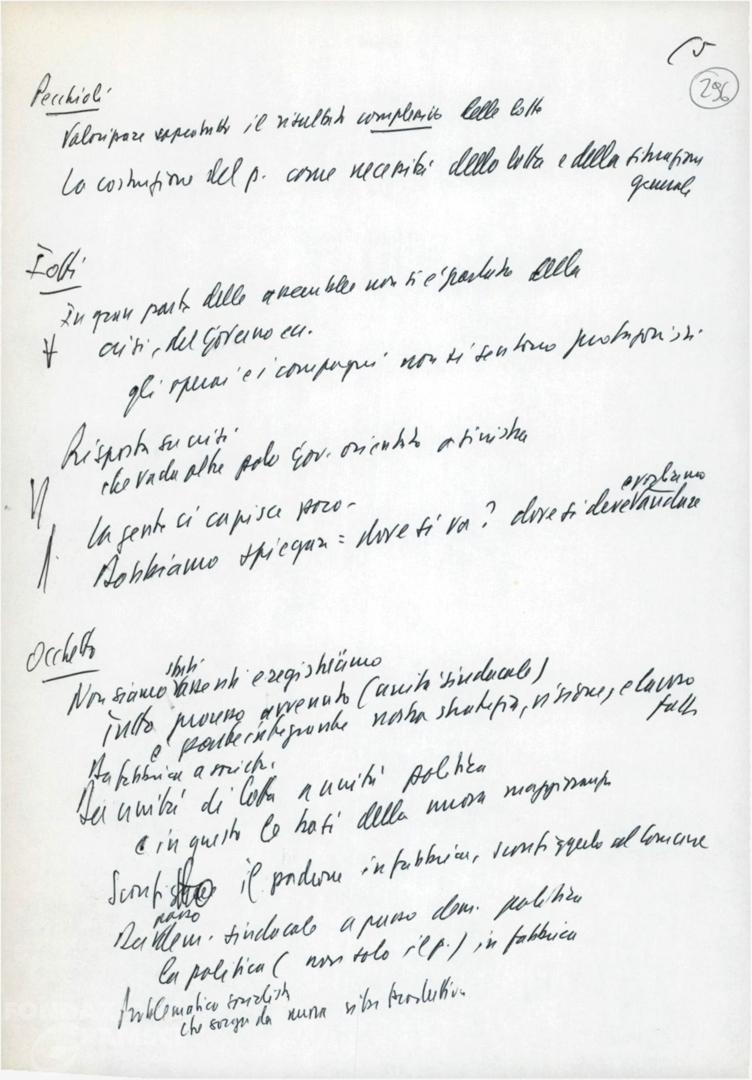 5
296
Pecchioli
Valorizzare soprattutto il risultato complessivo delle lotte
La costruzione del p. come necessità della lotta e della situazione
generale
Iotti
In gran parte delle assemblee non si è parlato della
crisi, del governo ecc.
gli operai e i compagni non si sentono protagonisti
Risposta su crisi
che vada oltre polo gov. orientato a sinistra
La gente ci capisce poco -
vogliamo
Dobbiamo spiegare = dove si va? dove si deve andare
Occhetto
stati
Non siamo assenti e registriamo
Tutto processo avvenuto (unità sindacale)
è parte integrante nostra strategia, visione, e lavoro
fatto
Da fabbrica a società.
Da unità di lotta a unità politica
e in questo le basi della nuova maggioranza
il padrone in fabbrica, sconfiggerlo al Comune
passo
Da dem. sindacale a dem. politica
la politica (non solo il p.) in fabbrica
Problematica socialista
che sorge da nuova
FONDAZ